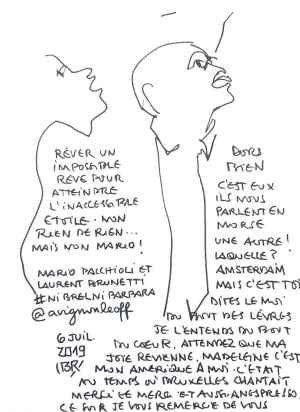 RÊVER UN
IMPOSSIBLE
RÊVE POUR
ATTEINDRE
L'INACCESSIBLE
ETOILE. MON
RIEN DE RIEN...
MAIS NON MARIO!
MARIO PACCHIOLI ET
LAURENT BRUNETTI
#NIBRELNIBARBARA
@avignonleoff
6 JUIL.
2019
DORS
BIEN
C'EST EUX
ILS NOUS
PARLENT EN
MORSE
UNE AUTRE!
LAQUELLE?
AMSTERDAM
MAIS C'EST TOI
DITES LE MOI
DU BOUT DES LÈVRES
JE L'ENTENDS DU BOUT
DU CŒUR, ATTENDEZ QUE MA
JOIE REVIENNE, MADELEINE C'EST
MON AMÉRIQUE À MOI. C'ÉTAIT
AU TEMPS OÙ BRUXELLES CHANTAIT
MERCI LE MERC ET ANSGANGSPRESSO
CE SOIR JE VOUS REMERCIE DE VOUS